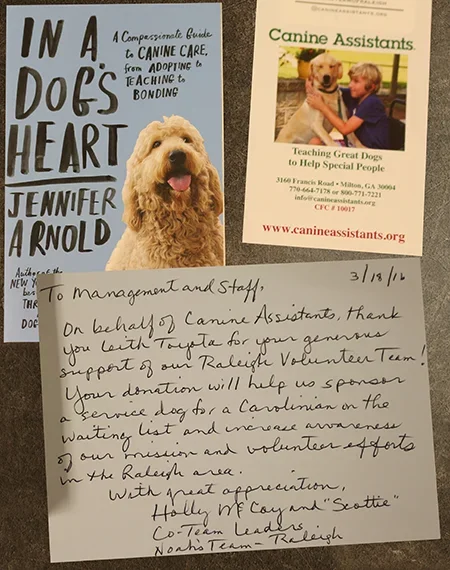 IN A
DOG'S
HEART
A Compassionate Guide
to CANINE CARE,
from ADOPTING to
TEACHING to
BONDING
JENNIFER
ARNOLD
Author of the
NEW Y
bes
THR
DOG
CANINEASSISTANTS.ORG
Canine Assistants.
Teaching Great Dogs
to Help Special People
3160 Francis Road • Milton, GA 30004
770-664-7178 or 800-771-7221
info@canineassistants.org
CFC # 10017
www.canineassistants.org
3/18/16
To Management and Staff,
On behalf of Canine Assistants, thank
you Leith Toyota for your generous
support of our Raleigh Volunteer Team!
Your donation will help us sponsor
a service dog for a Carolinian on the
waiting list and increase awareness
of our mission and volunteer efforts
in the Raleigh area.
With great appreciation,
Holly McCoy and "Scottie"
Co-Team Leaders
Noah's Team - Raleigh